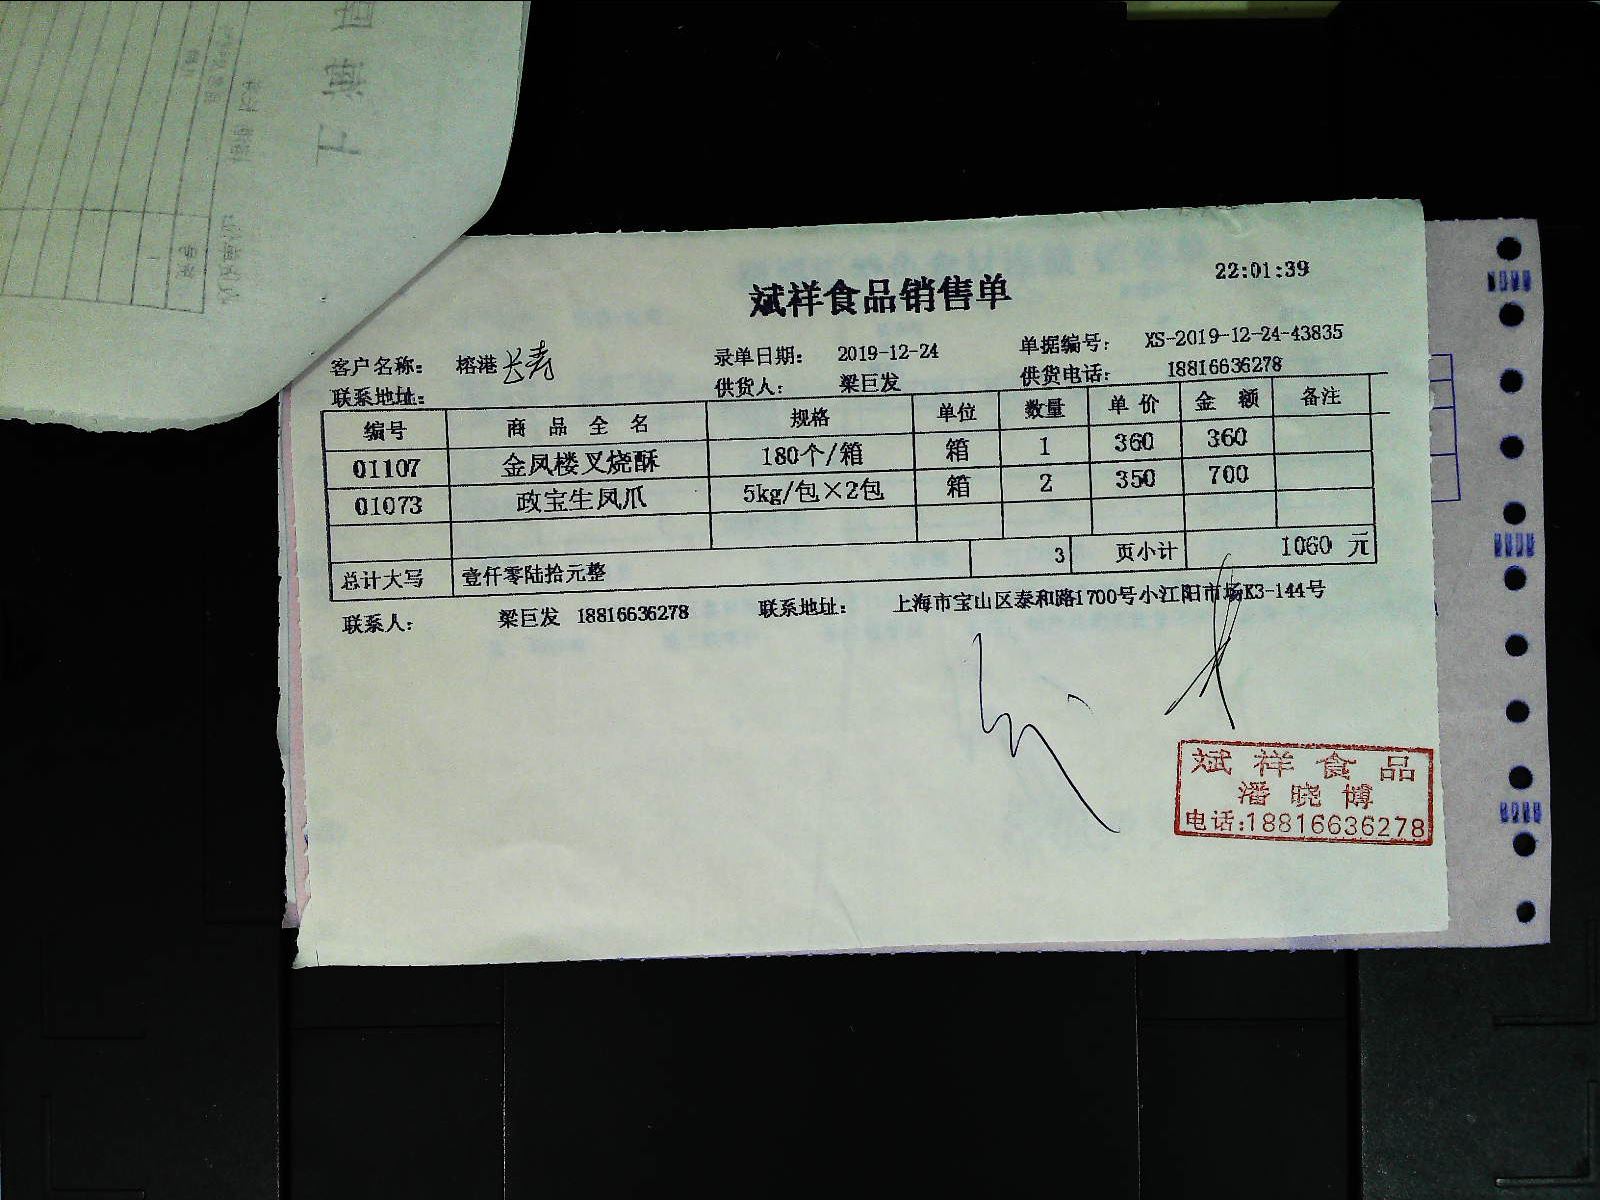 斌祥食品销售单
22:01:39
客户名称： 榕港长寿 录单日期： 2019-12-24 单据编号： XS-2019-12-24-43835
联系地址： 供货人： 梁巨发 供货电话： 18816636278
编号 商 品 全 名 规格 单位 数量 单 价 金 额 备注
01107 金凤楼叉烧酥 180个/箱 箱 1 360 360
01073 政宝生凤爪 5kg/包×2包 箱 2 350 700
3 页小计 1060 元
总计大写 壹仟零陆拾元整
联系人： 梁巨发 18816636278 联系地址： 上海市宝山区泰和路1700号小江阳市场K3-144号
斌祥食品
潘晓博
电话:18816636278